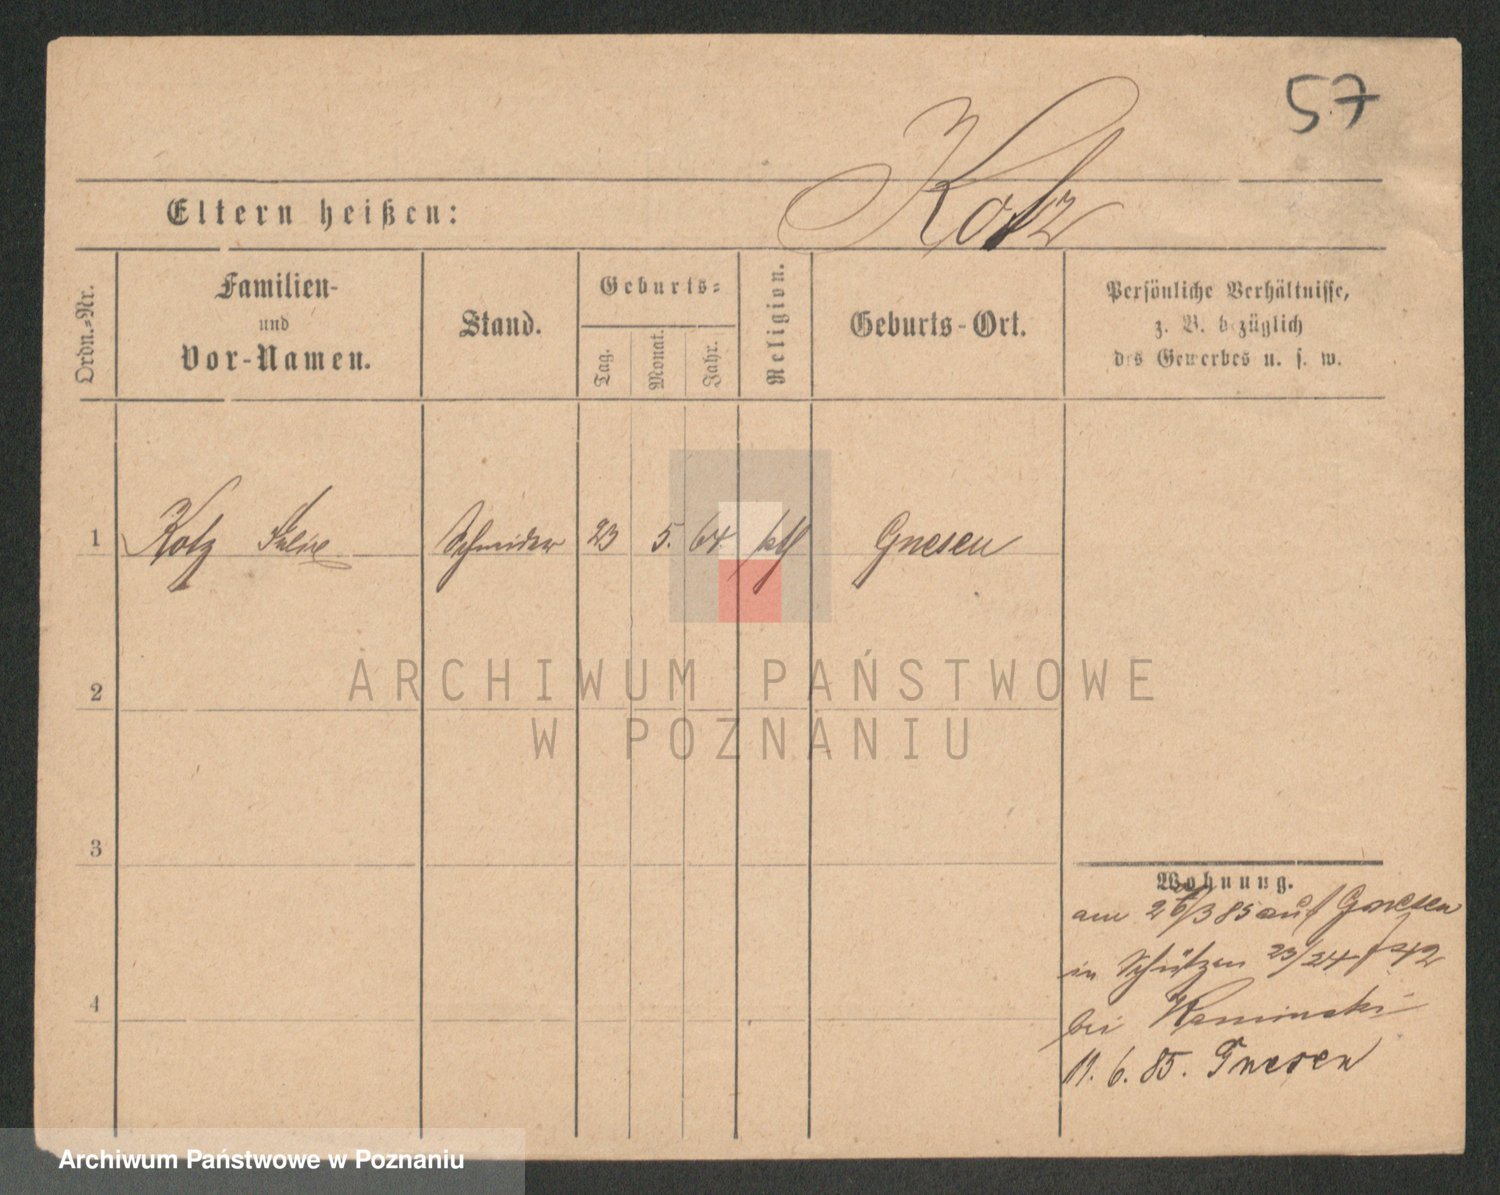 57
Kotz
Eltern heißen:
Ordn.=Nr.
Familien-
und
Vor-Namen.
Stand.
Geburts=
Tag.
Monat.
Jahr.
Religion.
Geburts-Ort.
Persönliche Verhältnisse,
z. B. bezüglich
des Gewerbes u. s. w.
1 Kotz Schneider 23 5. 64. ktl Gnesen
2
3
4
ARCHIWUM PAŃSTWOWE
W POZNANIU
Wohnung.
am 26/3 85 auf Gnesen
in Schützen 23/24
bei Kaminski
11. 6. 85. Gnesen
Archiwum Państwowe w Poznaniu